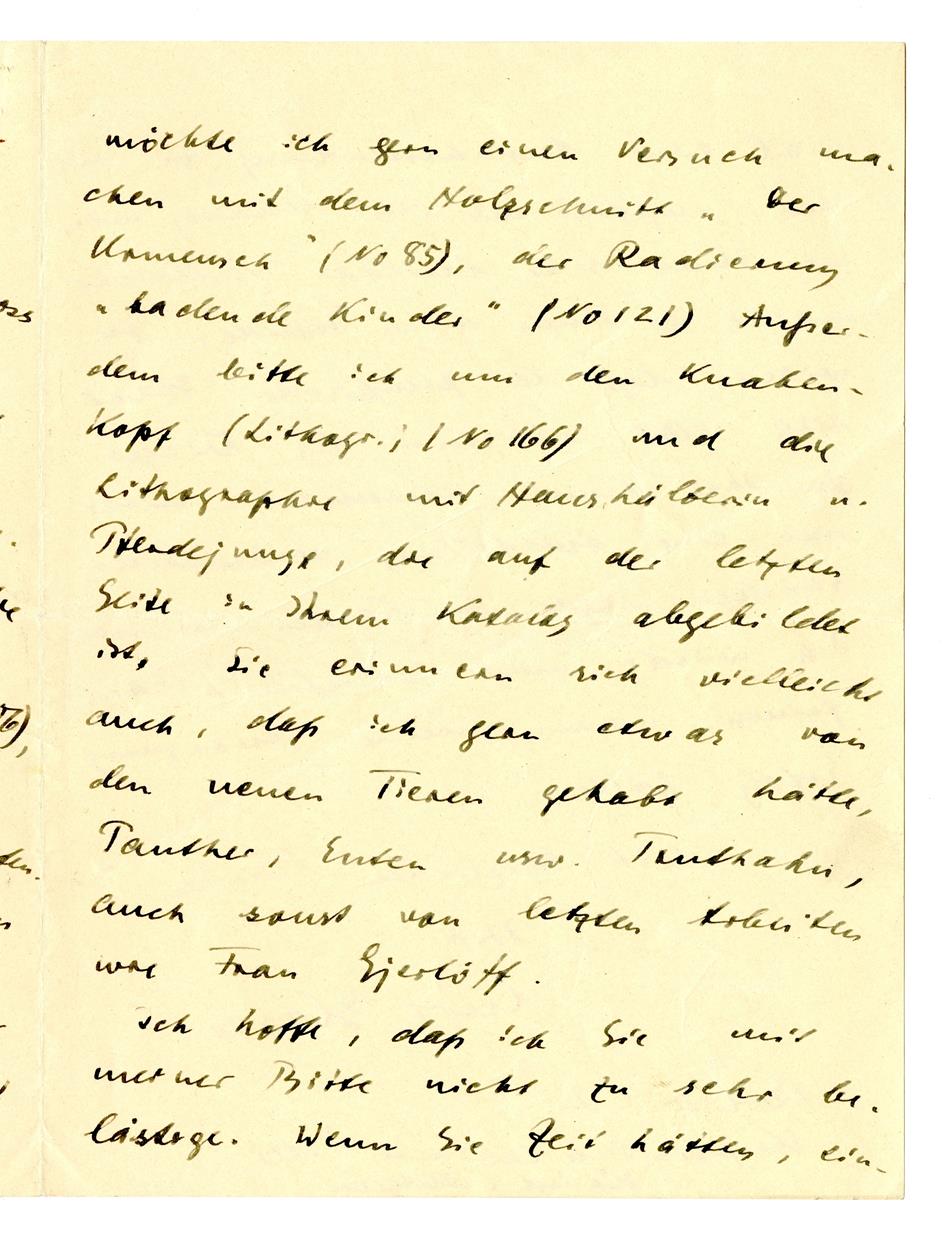 möchte ich gern einen Versuch ma-
chen mit dem Holzschnitt „Der
Urmensch" (No 85), der Radierung
„badende Kinder" (No 121) Außer-
dem bitte ich um den Knaben-
Kopf (Lithogr.; (No 166) und die
Lithographie mit Haushälterin u.
Pferdejunge, die auf der letzten
Seite in Ihrem Katalog abgebildet
ist. Sie erinnern sich vielleicht
auch, daß ich gern etwas von
den neuen Tieren gehabt hätte,
Panther, Enten usw. Truthahn,
auch sonst von letzten Arbeiten
wie Frau Gjerlöff.
Ich hoffe, daß ich Sie mit
meiner Bitte nicht zu sehr be-
lästige. Wenn Sie Zeit hätten, ein-